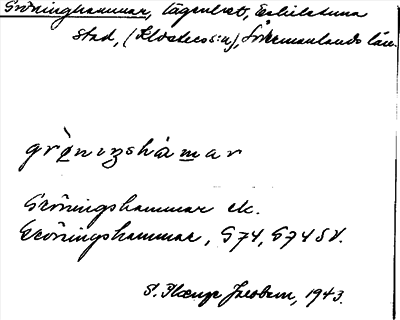 Gröninghammar, lägenhet, Eskilstuna
stad, (Klosters s:n), Södermanlands län.
gröniŋshámar
Gröningshammar ek.
Gröningshammar, G74, G74SV.
S. Plænge Jacobson, 1943.